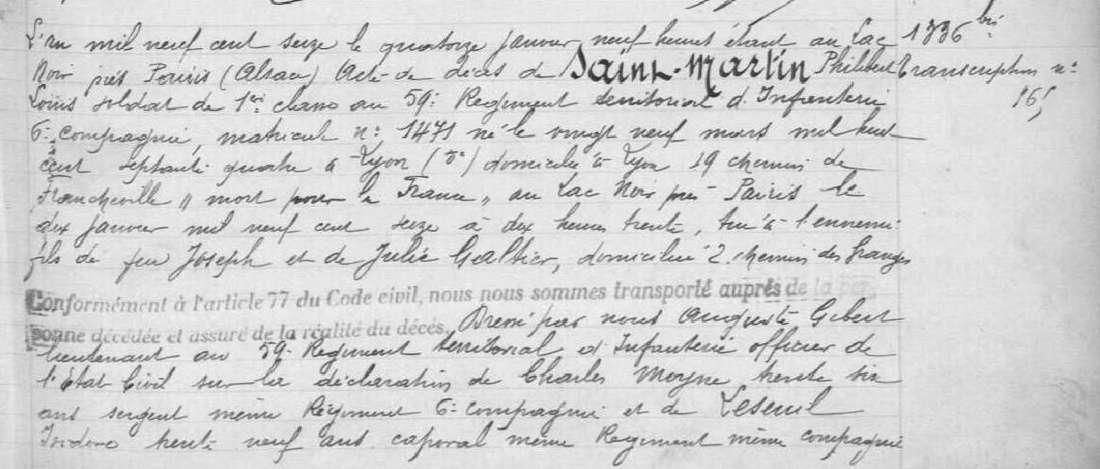 L'an mil neuf cent seize le quatorze janvier neuf heures étant au Lac
Noir près Pairis (Alsace) Acte de décès de Saint-Martin Philibert
Louis soldat de 1ere classe au 59e Regiment territorial d'Infanterie
6e compagnie, matricule n° 1471 né le vingt neuf mars mil huit
cent septante quatre à Lyon (5e) domicilié à Lyon 19 chemin de
Francheville "mort pour la France" au Lac Noir près Pairis le
dix janvier mil neuf cent seize à dix heures trente, tué à l'ennemi
fils de feu Joseph et de Julie Galtier, domiciliée 2 chemin des Granges
Conformément à l'article 77 du Code civil, nous nous sommes transporté auprès de la per-
sonne décédée et assuré de la réalité du décès. Dressé par nous Auguste Gibert
lieutenant au 59e Regiment territorial d'Infanterie officier de
l'Etat Civil sur la déclaration de Charles Moyne, trente six
ans sergent même Régiment 6e compagnie et de Leseuil
Isidore trente neuf ans caporal même Regiment même compagnie
1336 bis
Transcription n°
165